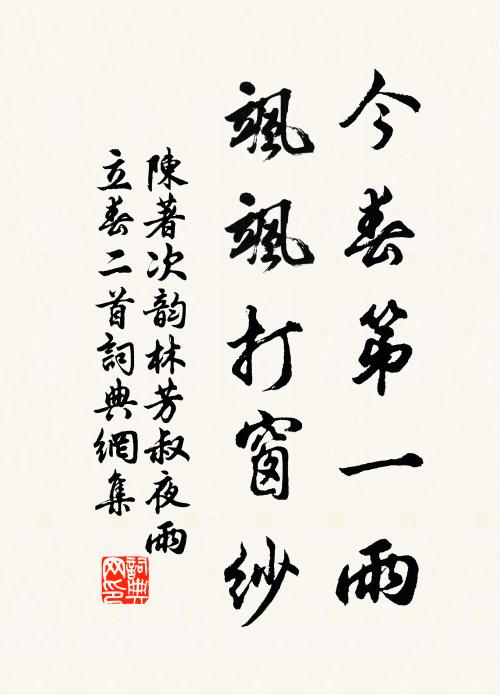 今春第一雨
颯颯打窗紗
陳著次韵林芳叔夜雨
立春二首詞典網集
詞典网印